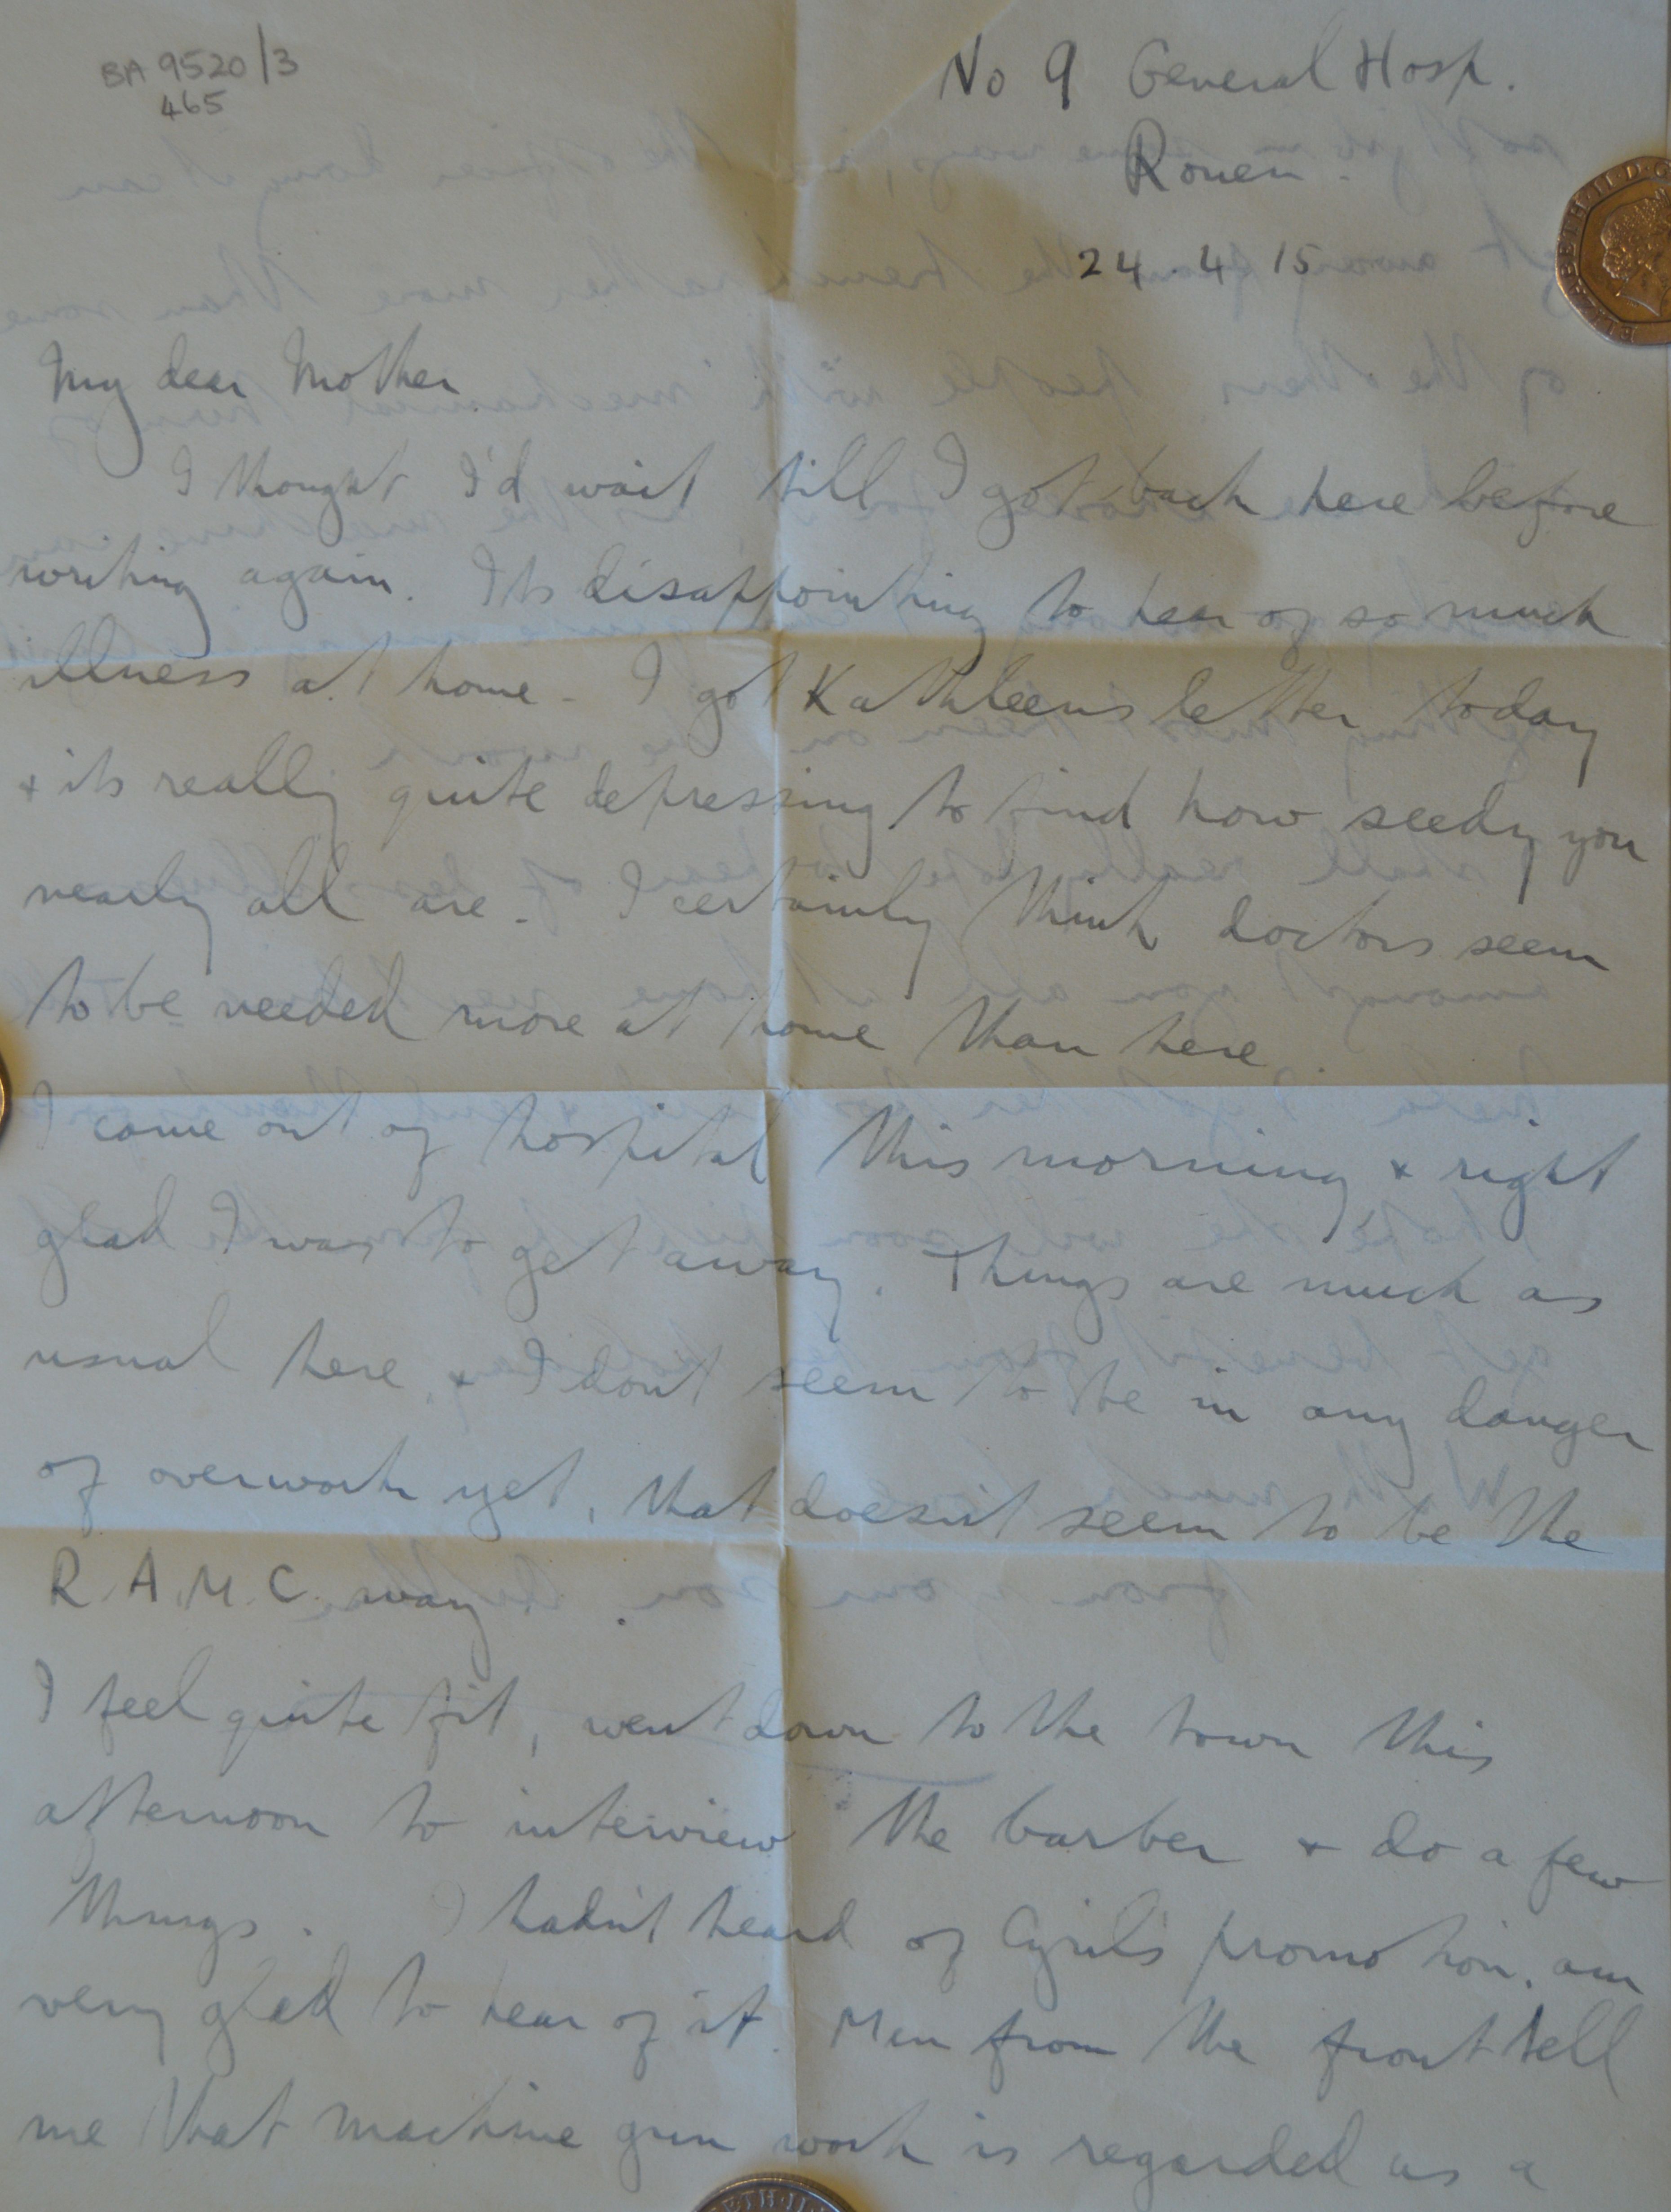 BA 9520/3
465
No 9 General Hosp.
Rouen.
24.4.15
My dear Mother
I thought I'd wait till I got back here before
writing again. Its disappointing to hear of so much
illness at home - I got Kathleens letter today
+ its really quite depressing to find how seedy you
nearly all are. I certainly think doctors seem
to be needed more at home than here.
I came out of hospital this morning + right
glad I was to get away. Things are much as
usual here, + I dont seem to be in any danger
of overwork yet, that doesn't seem to be the
R.A.M.C. way.
I feel quite fit, went down to the town this
afternoon to interview the barber + do a few
things. I hadn't heard of Cyril's promotion. am
very glad to hear of it. Men from the front tell
me that machine gun work is regarded as a
ELIZABETH·II·D·G
ETH·II·